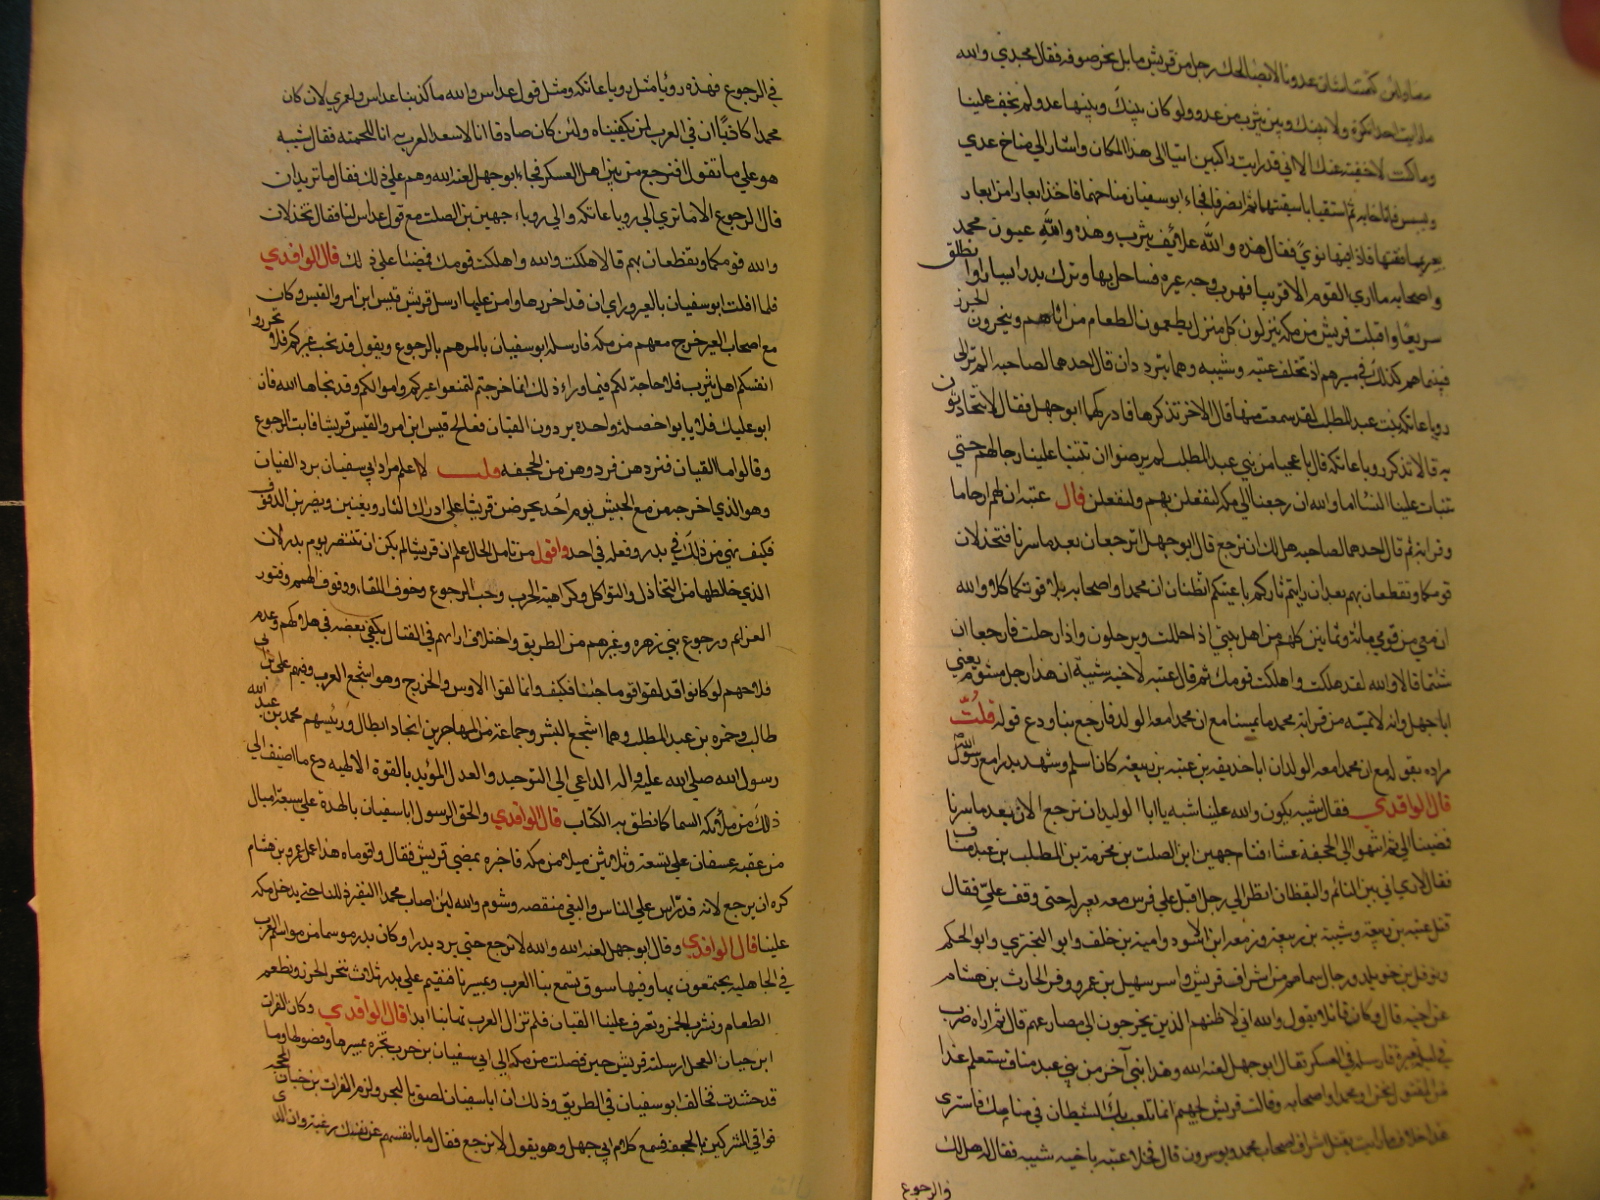 معاوية لئن كتمتنا شأن عدونا لا يصالحك رجل من قريش ما بل بحر صوفه فقال مجدي والله
ما رايت احدا نكره ولا بينك وبين يثرب من عدو ولو كان بينك وبينها عدو لم يخف علينا
وما كنت لاخفيه عنك الا اني قد رايت راكبين اتيا الى هذا المكان واشار الى مناخ عدي
وبسبس فاناخا به ثم استقيا باسقيتهما ثم انصرفا فجاء ابو سفيان مناخهما فاخذ ابعارا من ابعار
بعيريهما ففتها فاذا فيها نوي فقال هذه والله علائف يثرب وهذه والله عيون محمد
واصحابه ما اري القوم الا قريبا فضرب وجه عيره فساحل بها وترك بدرا يسارا وانطلق
سريعا واقبلت قريش من مكه ينزلون كل منزل يطعمون الطعام من اتاهم وينحرون الجزر
فبينما هم كذلك في مسيرهم اذ تخلف عتبه وشيبه وهما يترددان قال احدهما لصاحبه الم تر الى
رويا عاتكه بنت عبد المطلب لقد خشيت منها قال الاخر تذكرها فادركهما ابو جهل فقال ما تتحادثون
به قالا نذكر رويا عاتكه قال يا عجبا من بني عبد المطلب لم يرضوا ان تتنبا علينا رجالهم حتي
تنبات علينا النسا اما والله ان رجعنا الي مكه لنفعلن بهم ولنفعلن قال عتبه ان لهم ارحاما
وقرابه ثم قال احدهما لصاحبه هل لك ان نرجع قال ابو جهل اترجعان بعد ما سرنا فتخذلان
قومكما وتقطعان بهم بعد ان رايتم ثاركم باعينكم اتظنان ان محمدا واصحابه يلاقونكما كلا والله
ان معي من قومي مائة وثمانين كلهم من اهل بيتي اذا حللت ويرحلون واذا رحلت فارجعا ان
شئتما قالا والله لقد هلكت واهلكت قومك ثم قال عتبه لاخيه شيبة ان هذا رجل مشؤم يعني
ابا جهل وانه لا يمسه من قرابة محمد ما يمسنا مع ان محمدا معه الولد فارجع بنا ودع قوله قلت
مراده بقوله مع ان محمدا معه الولد ان ابا حذيفه بن عتبه بن ربيعه كان اسلم وشهد بدرا مع رسول الله
قال الواقدي فقال شيبه يكون والله علينا سبه يا ابا الوليد ان نرجع الان بعد ما سرنا
فمضينا الي ثم انتهوا الى الجحفة عشاء فنام جهيم ابن الصلت بن مخرمة بن المطلب بن عبد مناف
فقال اني ارى اني بين النائم واليقظان انظر الي رجل اقبل علي فرس معه بعير له حتى وقف علي فقال
قتل عتبه بن ربيعه وشيبه بن ربيعة وزمعه ابن الاسود وامية بن خلف وابو البختري وابو الحكم
ونوفل بن خويلد ورجال سماهم من اشراف قريش واسر سهيل بن عمرو وفر الحارث بن هشام
عن اخيه قال وكان قائلا يقول والله اني لاظنهم الذين يخرجون الى مصارعهم قال ثم اراه ضرب
في لبة بعيره فارسله في العسكر فقال ابو جهل لعنه الله وهذا نبي آخر من بني عبد مناف ستعلم غدا
من المقتول نحن او محمد واصحابه وقالت قريش لجهيم انما تلعب بك الشيطان في منامك فسترى
غدا خلاف ما رايت يقتل اشراف اصحاب محمد ويوسرون قال فخلا عتبه باخيه شيبه فقال له هل لك
والرجوع
في الرجوع فهذه رؤيا مثل رويا عاتكه ومثل قول عداس والله ما كذبنا عداس ولعمري لان كان
محمدا كاذبا ان في العرب لمن يكفيناه ولئن كان صادقا انا لاسعد العرب به انا للحمته فقال شيبه
هو علي ما تقول افنرجع من بين اهل العسكر فجاء ابو جهل لعنه الله وهم علي ذلك فقال ما تريدان
قالا الرجوع الا ما تري الي رويا عاتكه والي رويا جهيم بن الصلت مع قول عداس لنا فقال تخذلان
والله قومكما وتقطعان بهم قالا هلكت والله واهلكت قومك فمضيا علي ذلك قال الواقدي
فلما افلت ابو سفيان بالعير وراي ان قد احرزها وامن عليها ارسل قريش قيس ابن امرو القيس وكان
مع اصحاب العير خرج معهم من مكه فارسله ابو سفيان يامرهم بالرجوع ويقول قد نجت عيركم فلا تحرزوا
انفسكم اهل يثرب فلا حاجة لكم فيما وراء ذلك انما خرجتم لتمنعوا عيركم واموالكم وقد نجاها الله فان
ابو عليك فلا يابوا خصلة واحده يردون القيان فعالج قيس ابن امرو القيس قريشا فابت الرجوع
وقالوا اما القيان فنردهن فردوهن من الجحفه قلت لا اعلم مراد ابي سفيان برد القيان
وهو الذي اخرجهن مع الجيش يوم احد يحرضن قريشا علي ادراك الثار ويغنين ويضربن الدفوف
فكيف نهي عن ذلك في بدر وفعله في احد واقول من تامل الحال علم ان قريشا لم يكن ان تنتصر يوم بدر لان
الذي خالطها من التخاذل والتواكل وكراهية الحرب وحب الرجوع وخوف اللقاء ووقوف الهمم وفتور
العزايم ورجوع بني زهره وغيرهم من الطريق واختلاف ارائهم في القتال يكفي بعضه في هلاكهم وعدم
فلاحهم لو كانوا قد لقوا قوما جبنا فكيف وانما لقوا الاوس والخزرج وهم اشجع العرب وفيهم علي بن ابي
طالب وحمزه بن عبد المطلب وهما اشجع البشر وجماعة من المهاجرين انجاد ابطال ورئيسهم محمد بن عبد الله
رسول الله صلي الله عليه واله الداعي الي التوحيد والعدل المؤيد بالقوة الالهيه دع ما اضيف الي
ذلك من ملائكه السما كما نطق به الكتاب قال الواقدي والحق الرسول ابا سفيان بالهدة علي سبعة اميال
من عقبه عسفان علي تسعة وثلاثين ميلا من مكه فاخبره بمضي قريش فقال واقوماه هذا عمل عمرو بن هشام
كره ان يرجع لانه قد تراس علي الناس والبغي منقصه وشوم والله لئن اصاب محمد النفير ذللنا حتى يدخل مكه
علينا قال الواقدي وقال ابو جهل لعنه الله والله لا نرجع حتي نرد بدرا وكان بدر موسما من مواسم العرب
في الجاهليه يجتمعون بها وفيها سوق تسمع بنا العرب ومسيرنا فنقيم علي بدر ثلاث ننحر الجزر ونطعم
الطعام ونشرب الخمر وتعزف علينا القيان فلم تزال العرب تهابنا ابدا قال الواقدي وكان الفرات
ابن حيان العجلي ارسلته قريش حين فصلت من مكه الي ابي سفيان بن حرب يخبره بمسيرها وفصولها وما
قد حشدت فخالف ابو سفيان في الطريق وذلك ان ابا سفيان لصق بالبحر ولزم الفرات بن حيان المحجه
فوافي المشركين بالجحفه فسمع كلام ابي جهل وهو يقول لا نرجع فقال ما بانفسهم عن نفسك رغبه وان الذي